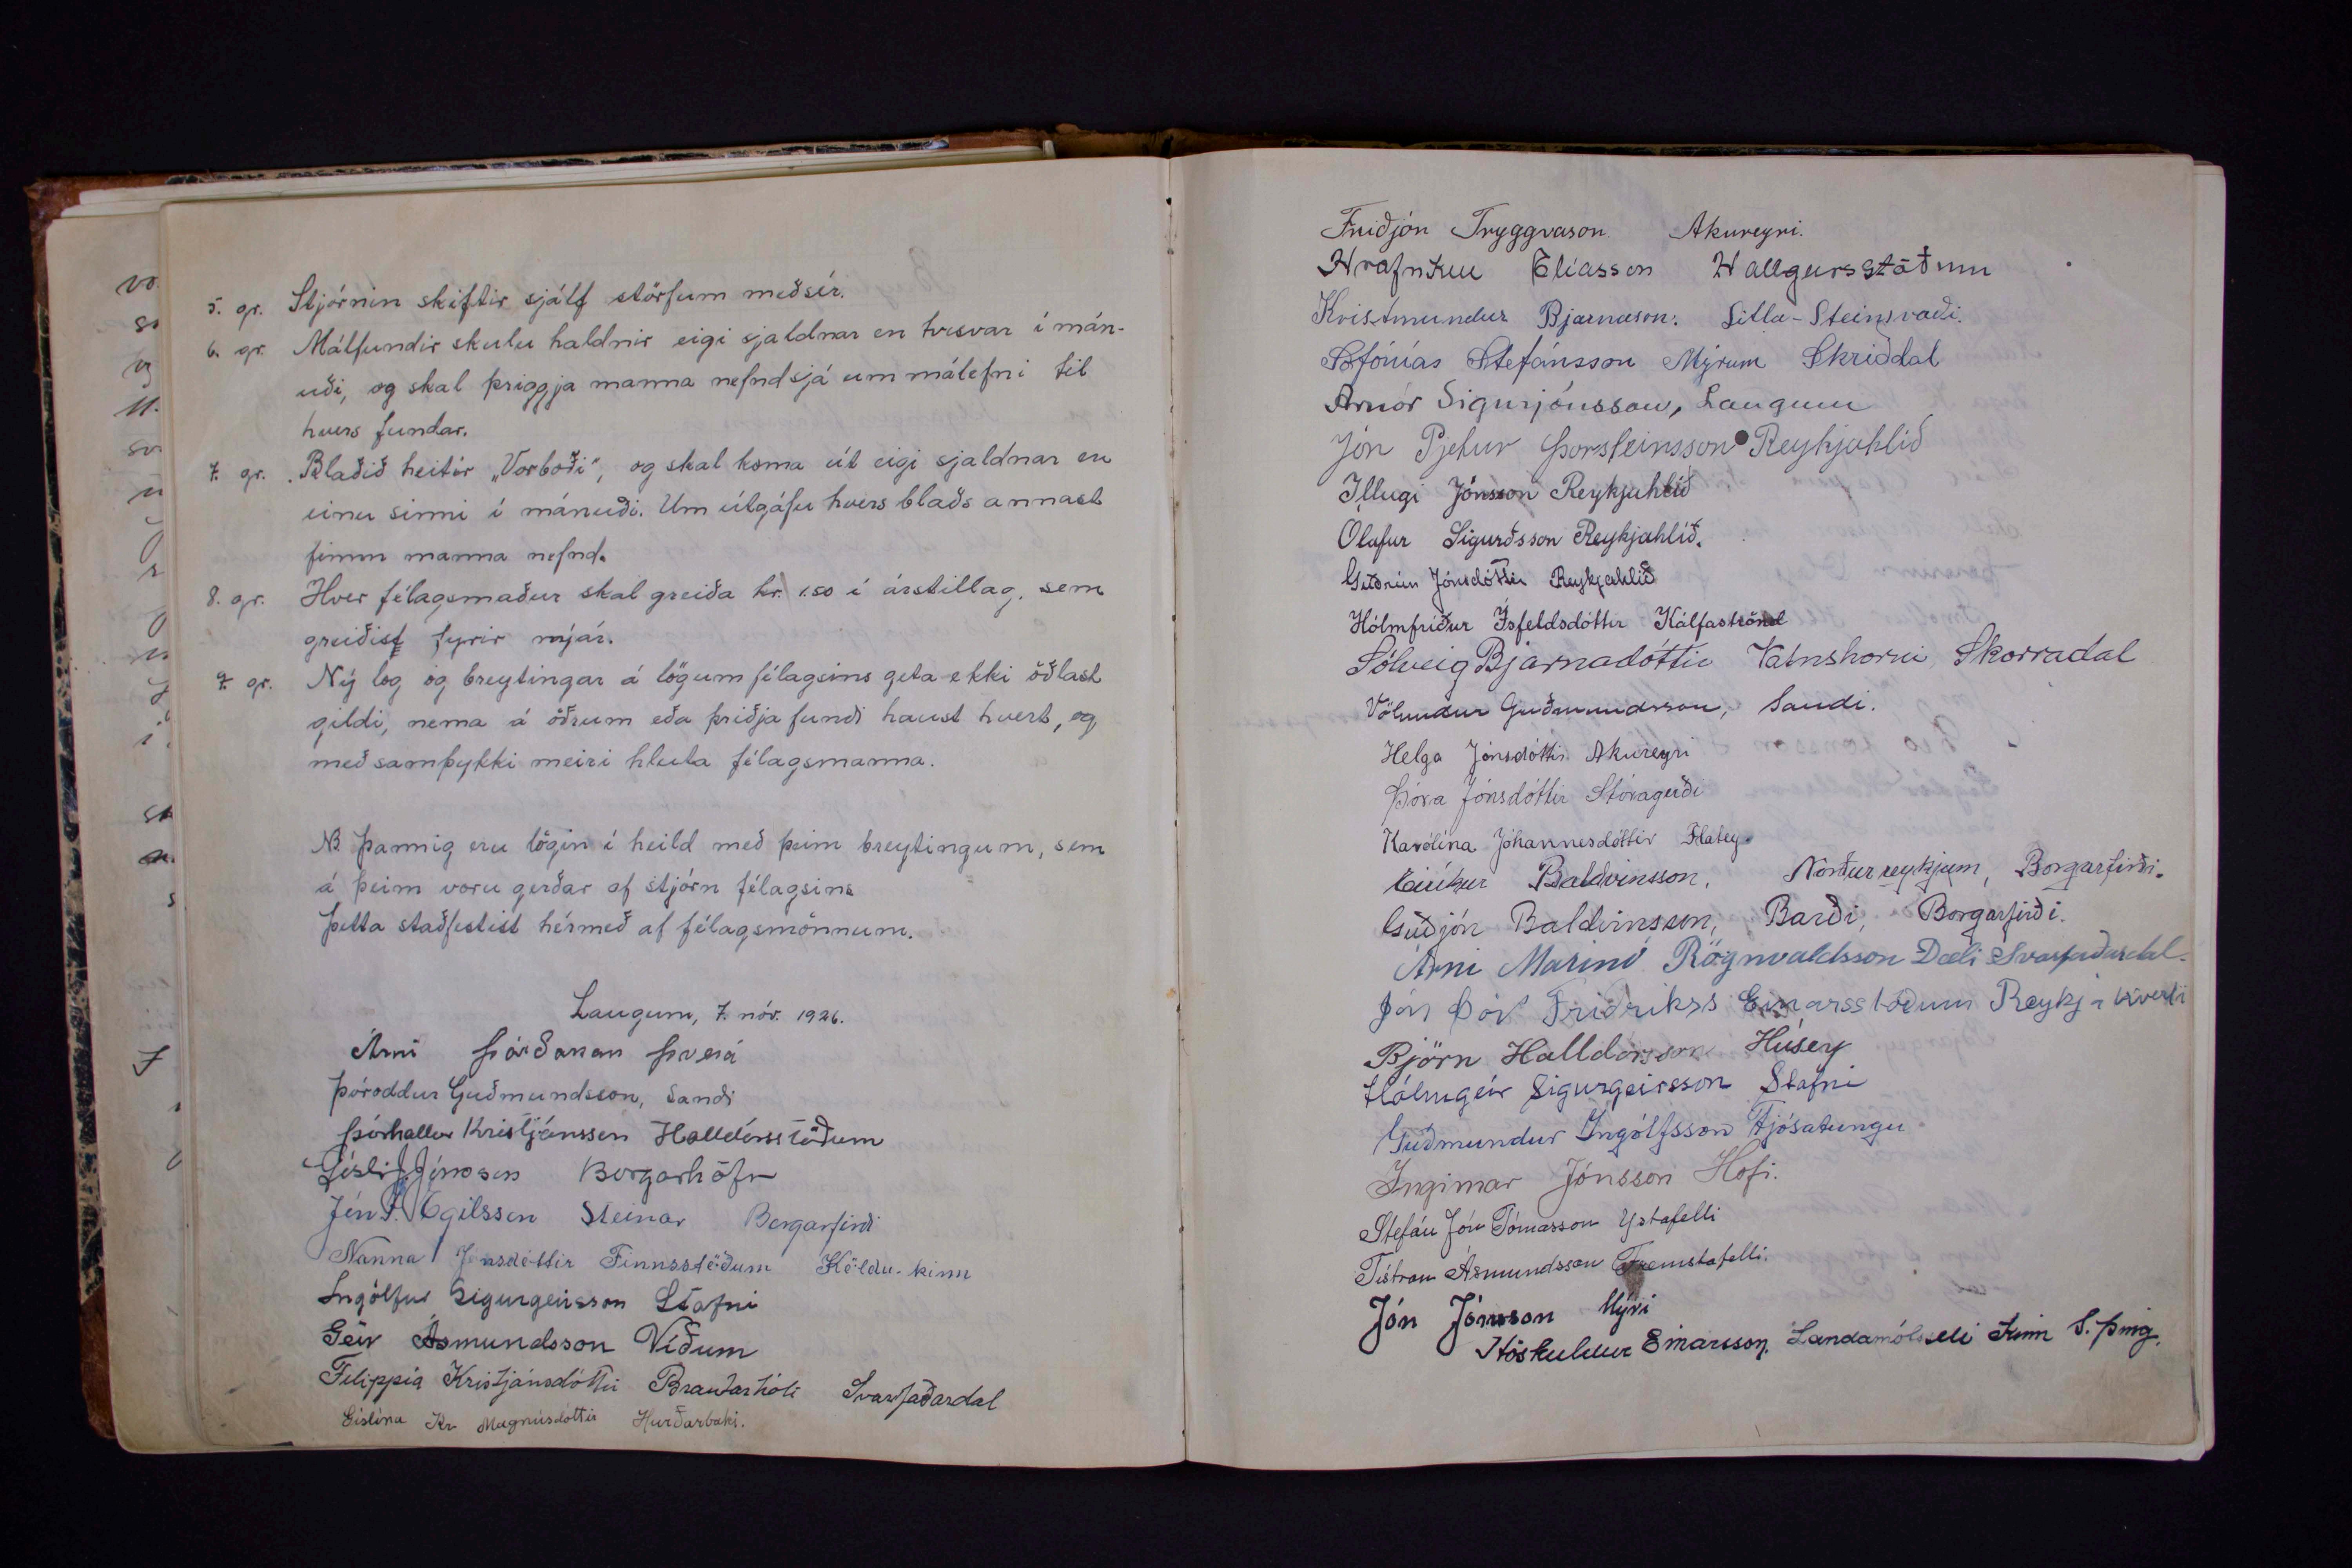 5. gr. Stjórnin skiftir sjálf störfum með sér.
6. gr. Málfundir skulu haldnir eigi sjaldnar en tvisvar í mán-
uði, og skal þriggja manna nefnd sjá um málefni til
hvers fundar.
7. gr. Blaðið heitir „Vorboði", og skal koma út eigi sjaldnar en
einu sinni í mánuði. Um útgáfu hvers blaðs annast
fimm manna nefnd.
8. gr. Hver félagsmaður skal greiða kr. 1.50 í árstillag, sem
greiðist fyrir nýjár.
9. gr. Ný lög og breytingar á lögum félagsins geta ekki öðlast
gildi, nema á öðrum eða þriðja fundi haust hvert, og
með samþykki meiri hluta félagsmanna.
NB Þannig eru lögin í heild með þeim breytingum, sem
á þeim voru gerðar af stjórn félagsins
Þetta staðfestist hérmeð af félagsmönnum.
Laugum, 7. nóv. 1926.
Árni Þórðarson Þverá
Þóroddur Guðmundsson, Sandi
Þórhallur Kristjánsson Halldórsstöðum
Gísli J. Jónsson Borgarhöfn
Jón Egilsson Steinar Borgarfirði
Nanna Jónsdóttir Finnsstöðum Köldu-kinn
Ingólfur Sigurgeirsson Stafni
Geir Ásmundsson Víðum
Filippía Kristjánsdóttir Brautarhóli Svarfaðardal
Gíslína Kr. Magnúsdóttir Hurðarbaki.
Friðjón Tryggvason Akureyri.
Hrafnkell Elíasson Hallgeirsstöðum
Kristmundur Bjarnason. Litla-Steinsvaði.
Sófónías Stefánsson Mýrum Skriðdal
Arnór Sigurjónsson, Laugum
Jón Pjetur Þorsteinsson Reykjahlíð
Illugi Jónsson Reykjahlíð
Ólafur Sigurðsson Reykjahlíð.
Guðrún Jónsdóttir Reykjahlíð
Hólmfríður Ísfeldsdóttir Kálfaströnd
Sólveig Bjarnadóttir Vatnshorni Skorradal
Völundur Guðmundsson, Sandi.
Helga Jónsdóttir Akureyri
Þóra Jónsdóttir Stóragerði
Karólína Jóhannesdóttir Flatey.
Eiríkur Baldvinsson, Norðurreykjum, Borgarfirði.
Guðjón Baldvinsson, Barði, Borgarfirði.
Árni Marinó Rögnvaldsson Dæli Svarfaðardal.
Jón Þór Friðrikss Einarsstöðum Reykjahverfi
Björn Halldórsson Húsey
Hólmgeir Sigurgeirsson Stafni
Guðmundur Ingólfsson Fjósatungu
Ingimar Jónsson Hofi.
Stefán Jón Tómasson Ystafelli
Tístran Ásmundsson Fremstafelli.
Jón Jónsson Mýri
Höskuldur Einarsson. Landamótsseli Kinn S. Þing.